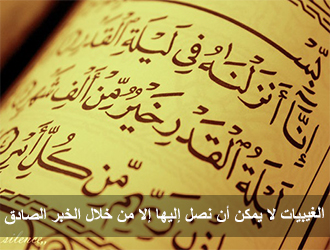 بِسْ
إِنَّآ أَنزَلْنَٰهُ فِى لَيْلَةِ ٱلْقَدْرِ
لَيْلَةُ ٱلْقَدْرِ خَيْرٌ مِّنْ أَلْفِ شَهْرٍ
مِّن كُلِّ أَمْرٍ
الغيبيات لا يمكن أن نصل إليها إلا من خلال الخبر الصادق
silence,,